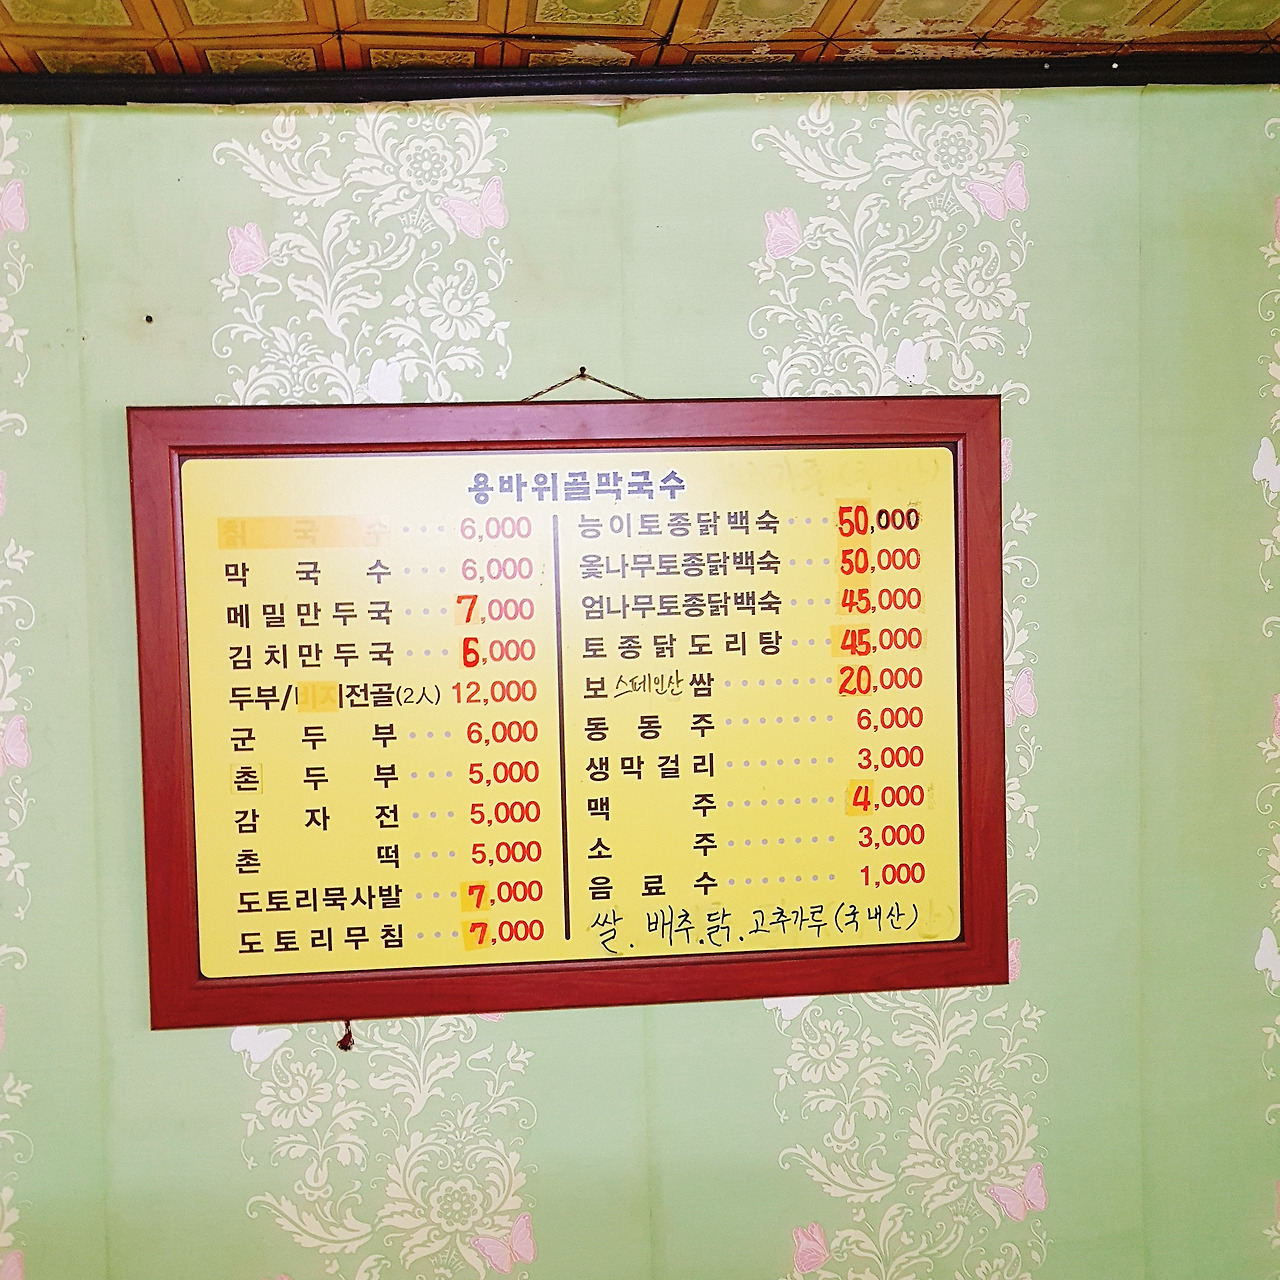 용바위골막국수
칡국수 ···· 6,000
막국수 ··· 6,000
메밀만두국 ··· 7,000
김치만두국 ··· 6,000
두부/비지전골(2人) 12,000
군두부 ··· 6,000
촌두부 ··· 5,000
감자전 ··· 5,000
촌떡 ··· 5,000
도토리묵사발 ··· 7,000
도토리무침 ··· 7,000
능이토종닭백숙 ··· 50,000
옻나무토종닭백숙 ··· 50,000
엄나무토종닭백숙 ··· 45,000
토종닭도리탕 ··· 45,000
보 스페인산 쌈 ······· 20,000
동동주 ······· 6,000
생막걸리 ······· 3,000
맥주 ······· 4,000
소주 ······· 3,000
음료수 ······· 1,000
쌀. 배추.닭.고추가루(국내산)